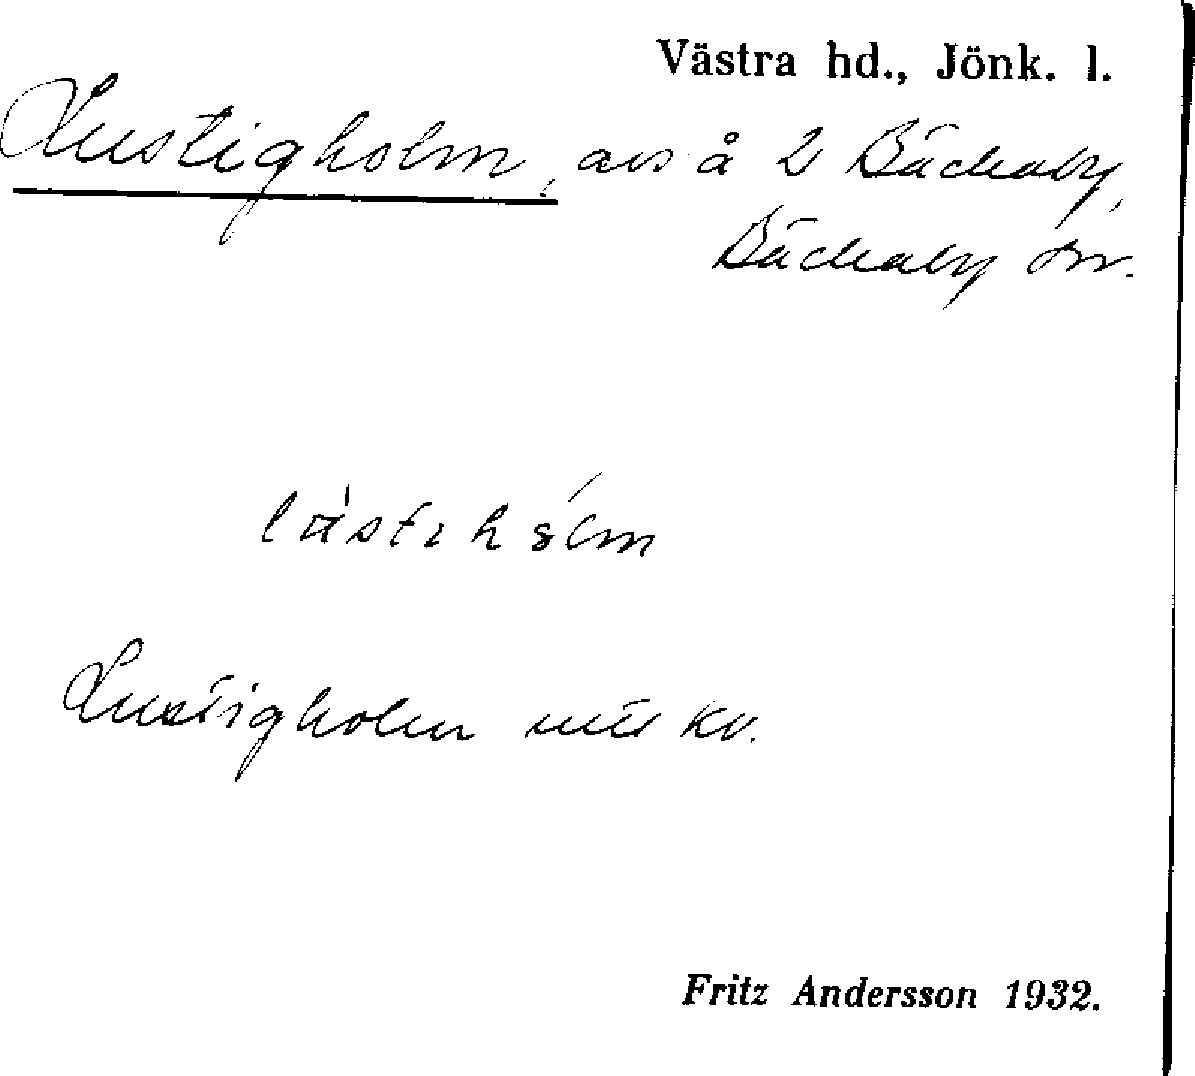 Västra hd., Jönk. l.
Lustigholm, avs å 2 Bäckaby,
Bäckaby sn.
Lustigholm mil kv.
Fritz Andersson 1932.